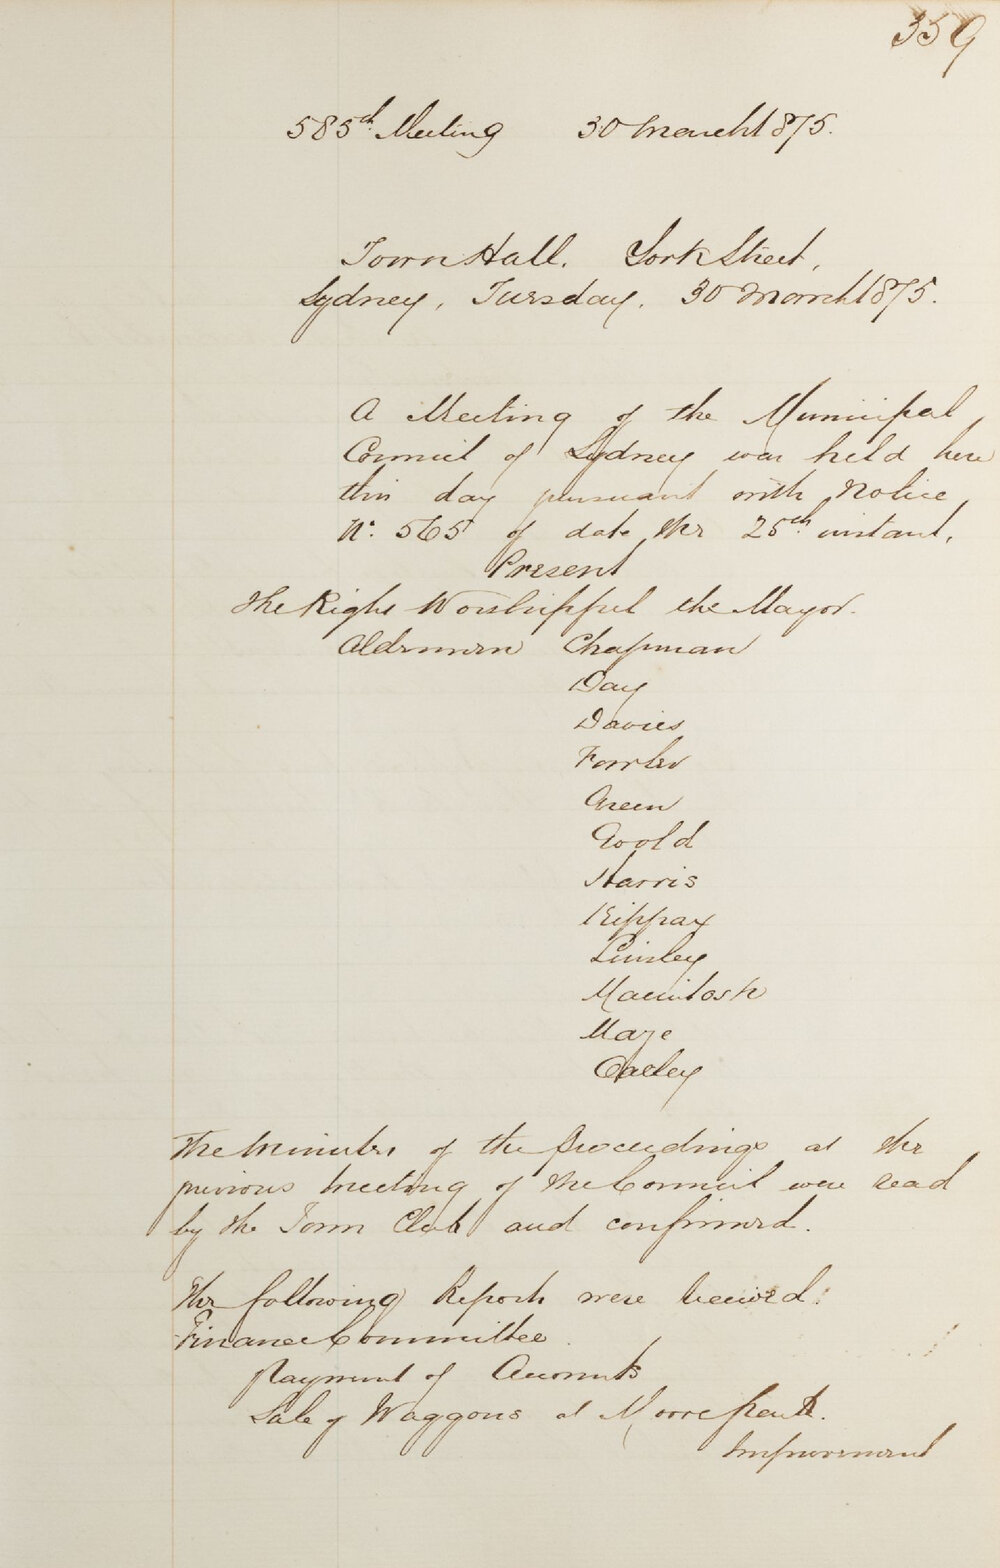 359
585th Meeting 30 March 1875.
Town Hall. York Street,
Sydney, Tuesday, 30 March 1875.
A Meeting of the Municipal
Council of Sydney was held here
this day pursuant with Notice
No. 565 of date the 25th instant,
Present
The Right Worshipful the Mayor.
Aldermen Chapman
Day
Davies
Fowler
Green
Goold
Harris
Kippax
Linsley
Macintosh
Maze
Oatley
The Minutes of the Proceedings at the
previous Meeting of the Council were read
by the Town Clerk and confirmed.
The following Reports were received:
Finance Committee
Payment of Accounts
Sale of Waggons at Moore Park.
Improvement